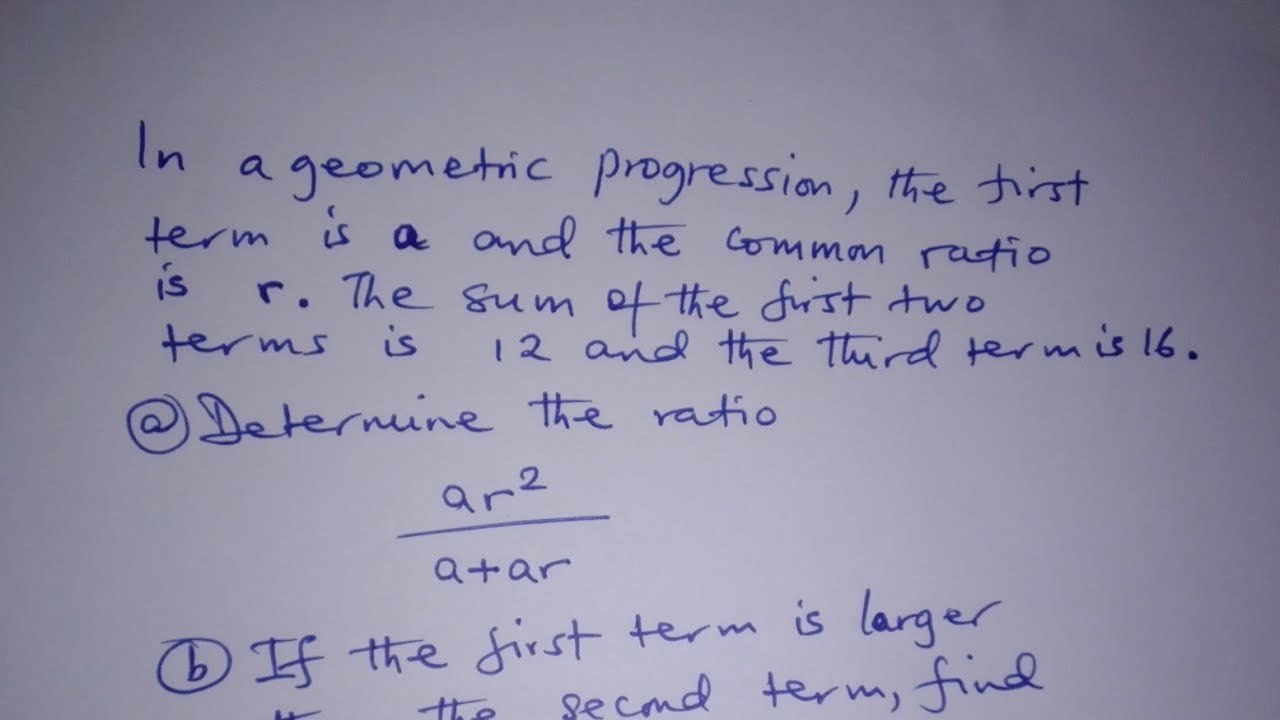 In a geometric progression, the first
term is a and the common ratio
is r. The sum of the first two
terms is 12 and the third term is 16.
(a) Determine the ratio
ar²
a+ar
(b) If the first term is larger
the second term, find